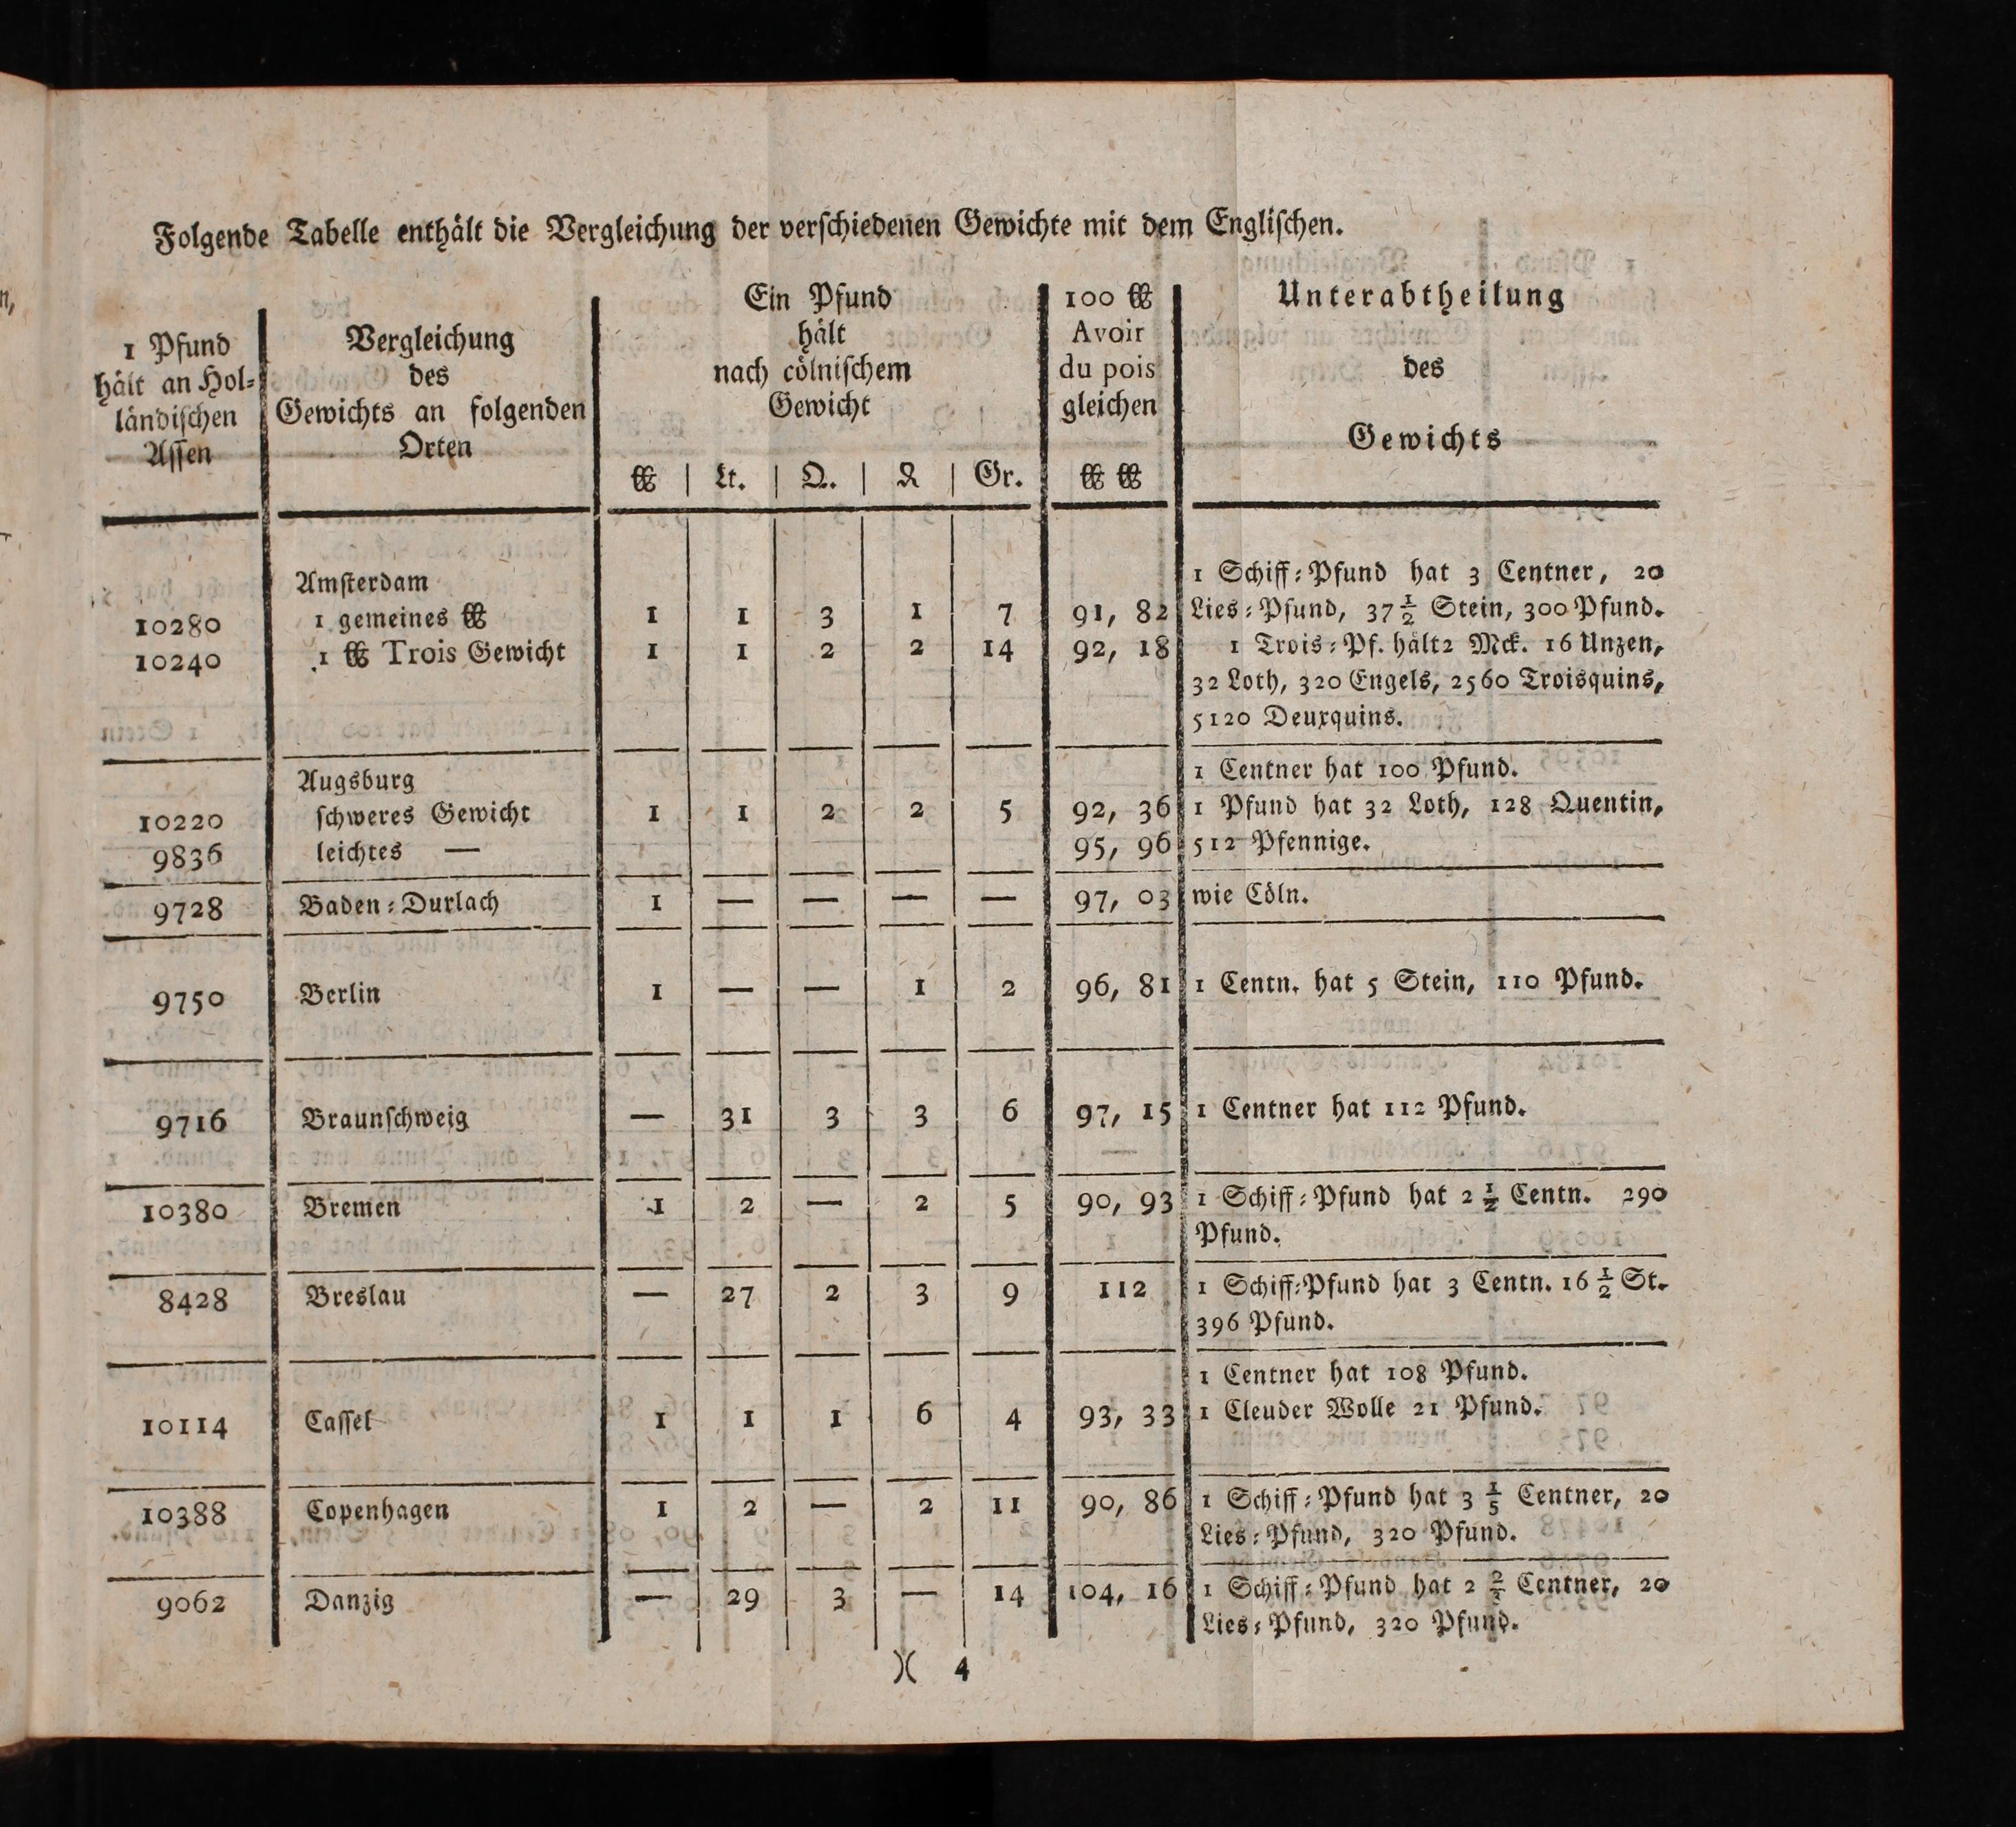 Folgende Tabelle enthält die Vergleichung der verſchiedenen Gewichte mit dem Engliſchen.
1 Pfund
hält an Hol⸗
ländiſchen
Aſſen
Vergleichung
des
Gewichts an folgenden
Orten
Ein Pfund
hält
nach cölniſchem
Gewicht
℔ | Lt. | Q. | | Gr.
100 ℔
Avoir
du pois
gleichen
℔ ℔
Unterabtheilung
des
Gewichts
Amſterdam
10280 1 gemeines ℔ 1 1 3 1 7 91, 82
10240 1 ℔ Trois Gewicht 1 1 2 2 14 92, 18
1 Schiff⸗Pfund hat 3 Centner, 20
Lies⸗Pfund, 37 1/2 Stein, 300 Pfund.
1 Trois⸗Pf. hält 2 Mck. 16 Unzen,
32 Loth, 320 Engels, 2560 Troisquins,
5120 Deuxquins.
Augsburg
10220 ſchweres Gewicht 1 1 2 2 5 92, 36
9836 leichtes — 95, 96
1 Centner hat 100 Pfund.
1 Pfund hat 32 Loth, 128 Quentin,
512 Pfennige.
9728 Baden⸗Durlach 1 — — — — 97, 03 wie Cöln.
9750 Berlin 1 — — 1 2 96, 81 1 Centn. hat 5 Stein, 110 Pfund.
9716 Braunſchweig — 31 3 3 6 97, 15 1 Centner hat 112 Pfund.
10380 Bremen 1 2 — 2 5 90, 93 1 Schiff⸗Pfund hat 2 1/2 Centn. 290
Pfund.
8428 Breslau — 27 2 3 9 112 1 Schiff⸗Pfund hat 3 Centn. 16 1/2 St.
396 Pfund.
1 Centner hat 108 Pfund.
10114 Caſſel 1 1 1 6 4 93, 33 1 Cleuder Wolle 21 Pfund.
10388 Copenhagen 1 2 — 2 11 90, 86 1 Schiff⸗Pfund hat 3 1/5 Centner, 20
Lies⸗Pfund, 320 Pfund.
9062 Danzig — 29 3 — 14 104, 16 1 Schiff⸗Pfund hat 2 2/3 Centner, 20
Lies⸗Pfund, 320 Pfund.
)( 4